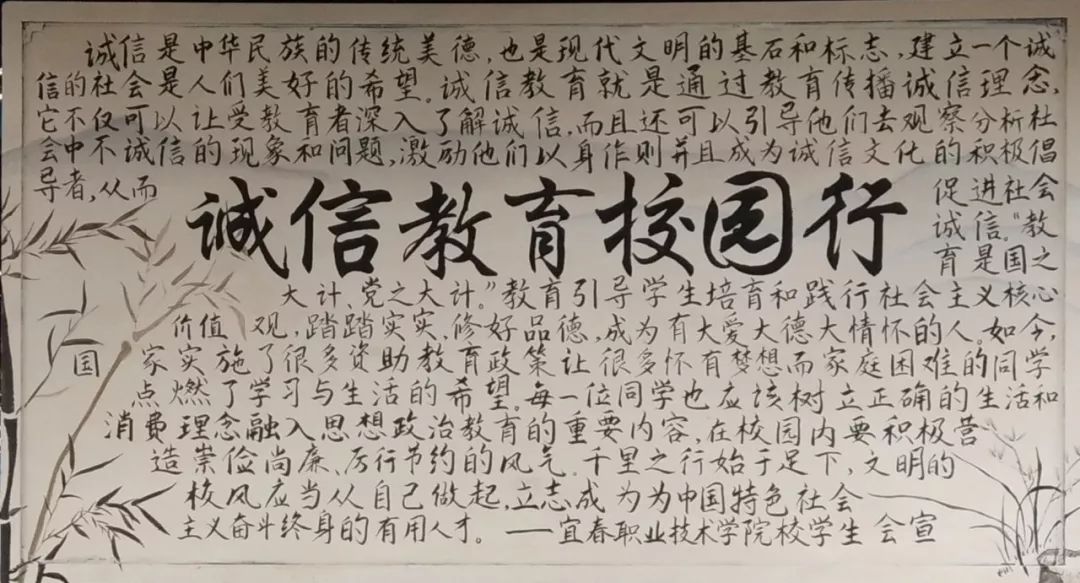 诚信是中华民族的传统美德,也是现代文明的基石和标志,建立一个诚
信的社会是人们美好的希望。诚信教育就是通过教育传播诚信理念,
它不仅可以让受教育者深入了解诚信,而且还可以引导他们去观察分析社
会中不诚信的现象和问题,激励他们以身作则并且成为诚信文化的积极倡
导者,从而
诚信教育校园行
促进社会
诚信。“教
育是国之
大计、党之大计。”教育引导学生培育和践行社会主义核心
价值观,踏踏实实、修好品德,成为有大爱大德大情怀的人。如今,
国家实施了很多资助教育政策让很多怀有梦想而家庭困难的同学
点燃了学习与生活的希望。每一位同学也应该树立正确的生活和
消费理念融入思想政治教育的重要内容,在校园内要积极营
造崇俭尚廉、厉行节约的风气。千里之行始于足下,文明的
校风应当从自己做起,立志成为为中国特色社会
主义奋斗终身的有用人才。——宜春职业技术学院校学生会宣